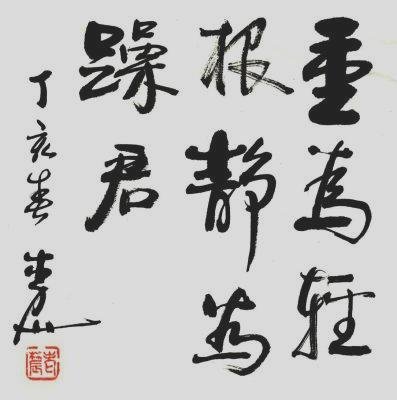 重為輕
根靜為
躁君
丁亥春